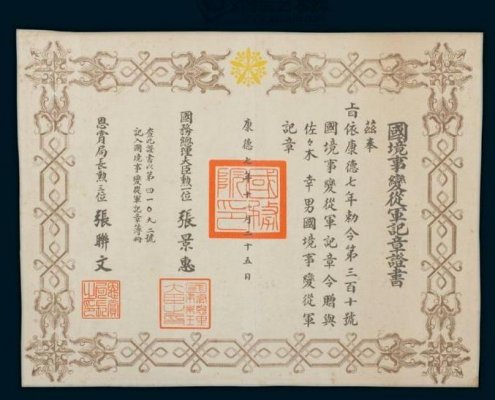 國境事變從軍記章證書
茲奉
旨依康德七年勅令第三百十號
國境事變從軍記章令贈與
佐々木幸男國境事變從軍
記章
康德七年十月二十五日
國務總理大臣勲一位 張景惠
查此證書以第四一〇九二號
記入國境事變從軍記章簿册
恩賞局長勲三位 張聯文
國務院印